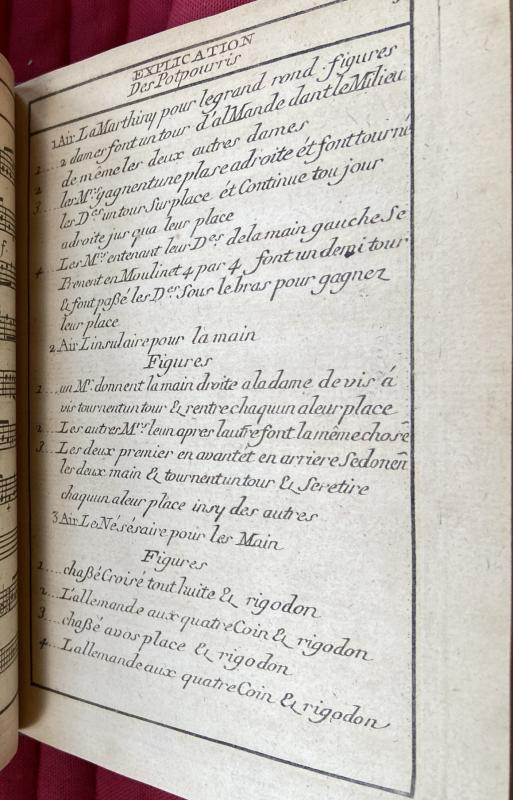 EXPLICATION
Des Potpourris
1 Air La Marthiny pour le grand rond figures
1.... 2 dames font un tour d'alMande dant le Milieu
2 de même les deux autres dames
3... les Mrs. gagnent une plase adroite ét font tourné
les Des. un tour Sur place ét Continue toujour
adroite jusqua leur place
4... Les Mrs. entenant leur Des. dela main gauche Se
Prenent en Moulinet 4 par 4 font un demi tour
& font paßé les Des. Sous le bras pour gagnez
leur place
2 Air L'insulaire pour la main
Figures
1... un Mr. donnent la main droite a la dame de vis á
vis tournent un tour & rentre chaquun a leur place
2... Les autres Mrs. l'eun apres lautre font la même chose
3... Les deux premier en avant ét en arriere Se donen
les deux main & tournent un tour & Se retire
chaquun a leur place insy des autres
3 Air Le Nésésaire pour les Main
Figures
1.... chaßé Croisé tout huite & rigodon
2... L'allemande aux quatre Coin & rigodon
3... chaßé avos place & rigodon
4... L'allemande aux quatre Coin & rigodon